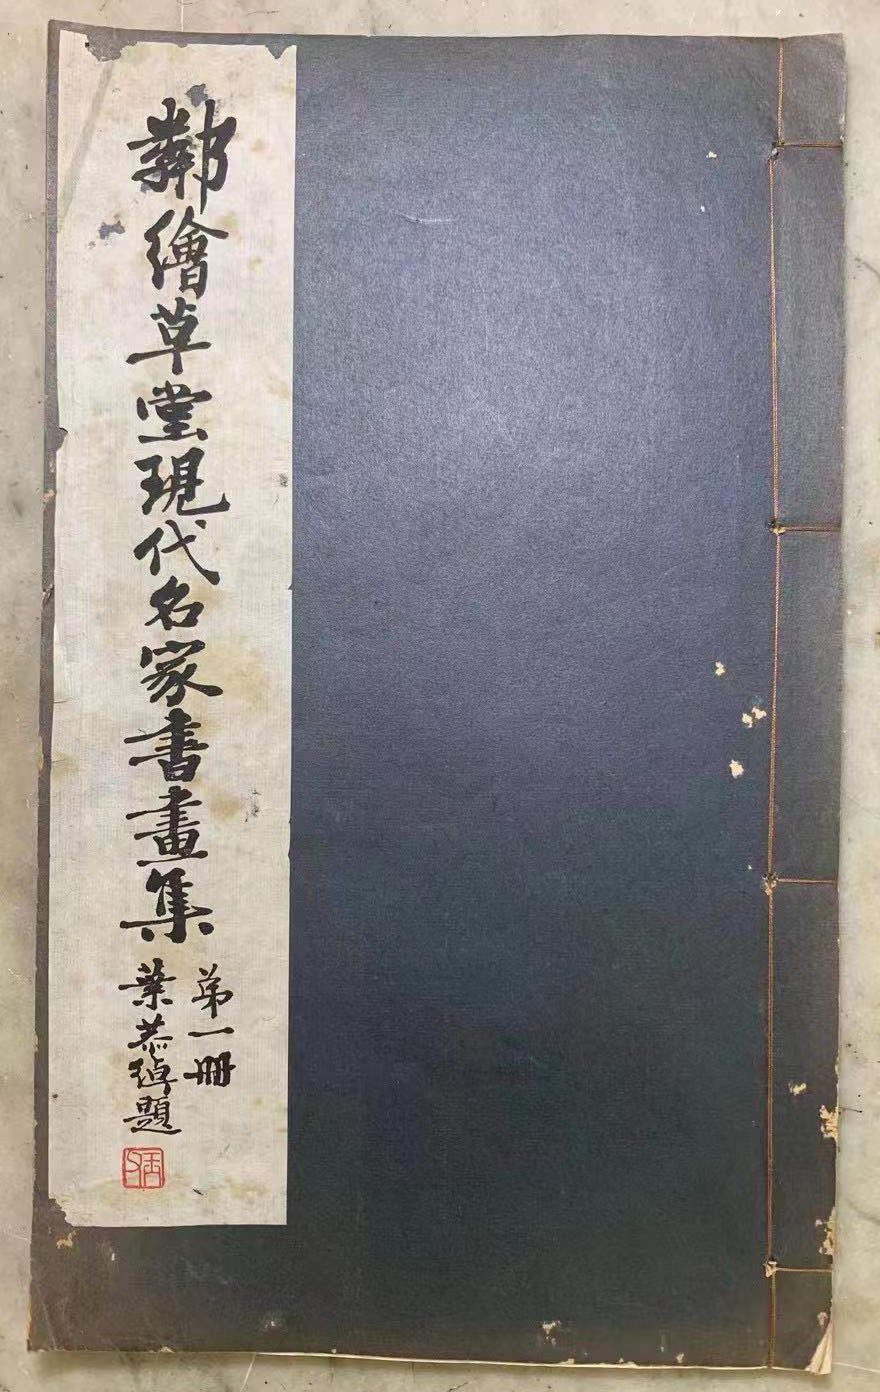 鄰繪草堂現代名家書畫集
第一冊
葉恭綽題